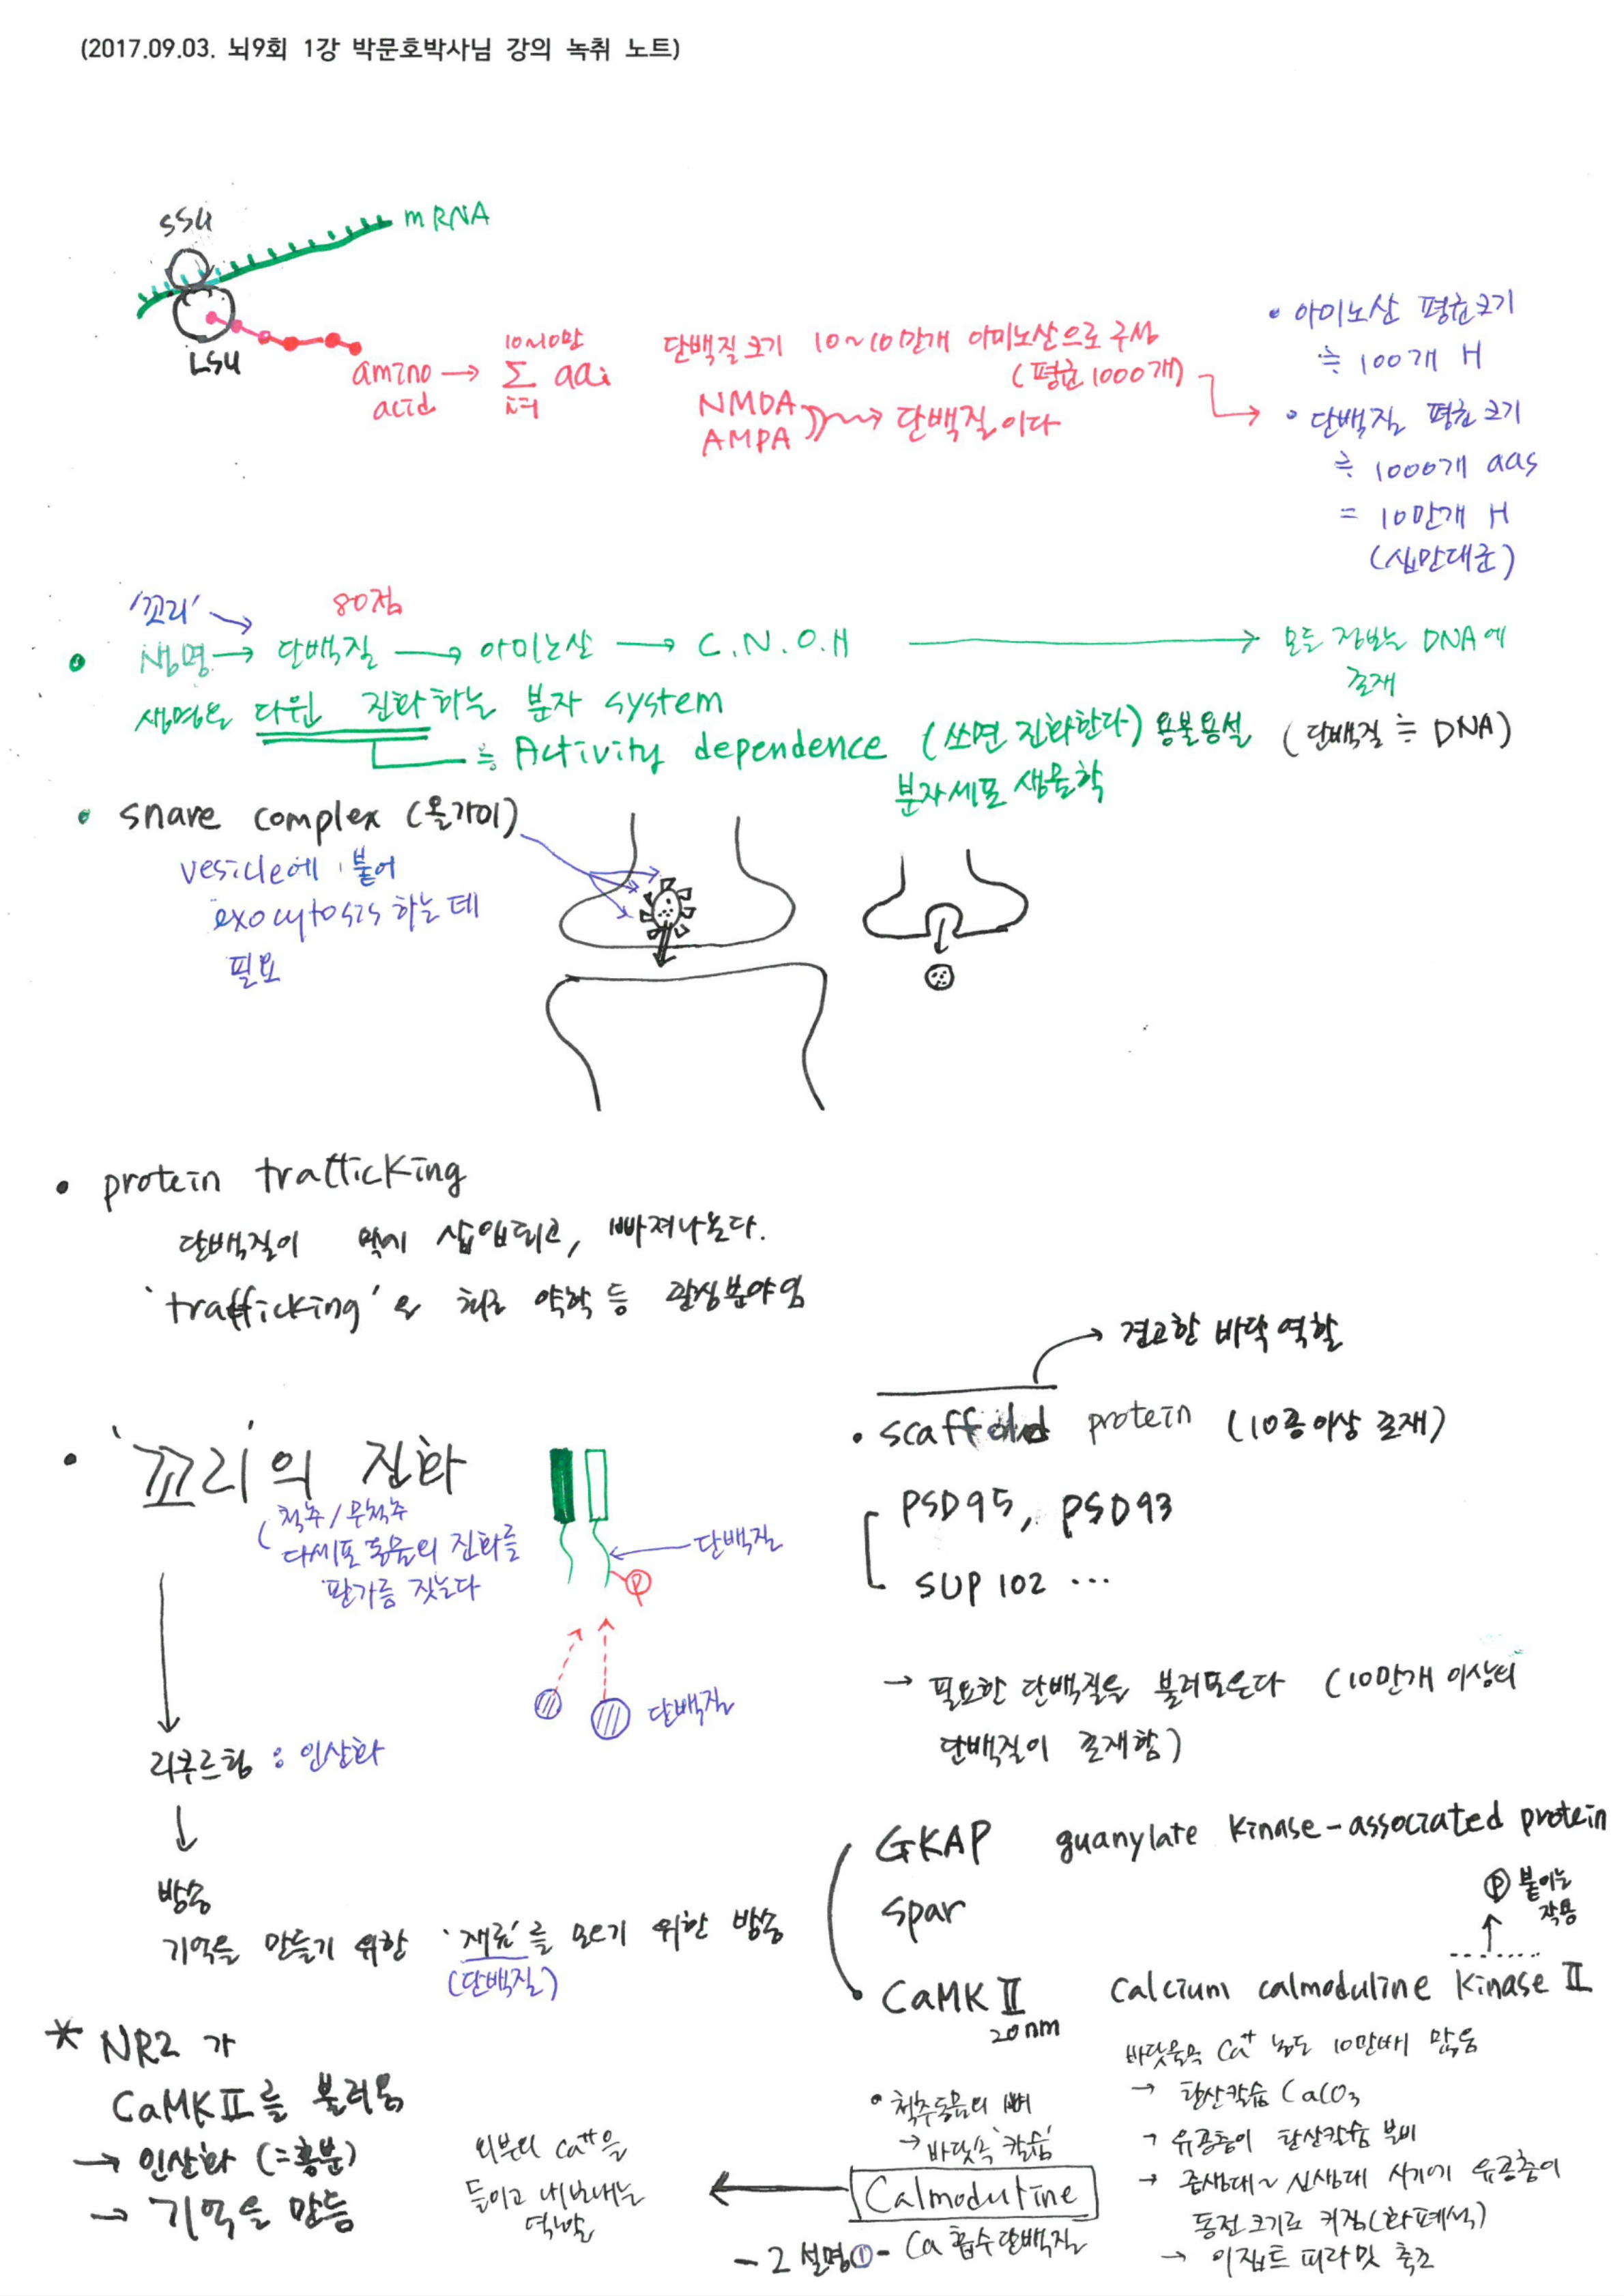 (2017.09.03. 뇌9회 1강 박문호박사님 강의 녹취 노트)
SSU
mRNA
LSU
amino acid → 10~10만 Σ aai
단백질 크기 10~10만개 아미노산으로 구성
(평균 1000개)
NMDA
AMPA → 단백질이다
• 아미노산 평균크기
≒ 100개 H
• 단백질 평균크기
≒ 1000개 aas
= 10만개 H
(십만대군)
'꼬리'
80점
• 생명 → 단백질 → 아미노산 → C.N.O.H → 모든 정보는 DNA에
존재
생명은 다윈 진화하는 분자 system
≒ Activity dependence (쓰면 진화한다) 용불용설 (단백질 ≒ DNA)
분자세포 생물학
• snare complex (올가미)
vesicle에 붙어
exocytosis 하는데
필요
• protein trafficking
단백질이 막에 삽입되고, 빠져나온다.
'trafficking'은 최근 약학 등 관심분야임
• '꼬리'의 진화
(척추/무척추
다세포 동물의 진화를
판가름 짓는다
단백질
P
단백질
리쿠르팅 : 인산화
↓
방송
기억을 만들기 위한 '재료'를 모으기 위한 방송
(단백질)
* NR2 가
CaMKⅡ를 불러옴
→ 인산화 (=흥분)
→ 기억을 만듬
→ 견고한 바닥 역할
• scaffold protein (10종이상 존재)
PSD95, PSD93
SUP 102 ...
→ 필요한 단백질을 불러모은다 (10만개 이상의
단백질이 존재함)
GKAP guanylate kinase-associated protein
Spar
P 붙이는
작용
• CaMKⅡ Calcium calmoduline kinaseⅡ
20nm
바닷물속 Ca⁺ 농도 10만배 많음
→ 탄산칼슘 CaCO₃
→ 유공충이 탄산칼슘 분비
→ 중생대~신생대 시기에 유공충이
동전크기로 커짐(화폐석)
→ 이집트 피라밋 축조
• 척추동물의 뼈
→ 바닷속 '칼슘'
Calmoduline
- Ca 흡수단백질
외부의 Ca⁺⁺을
들이고 내보내는
역할
- 2 설명① -